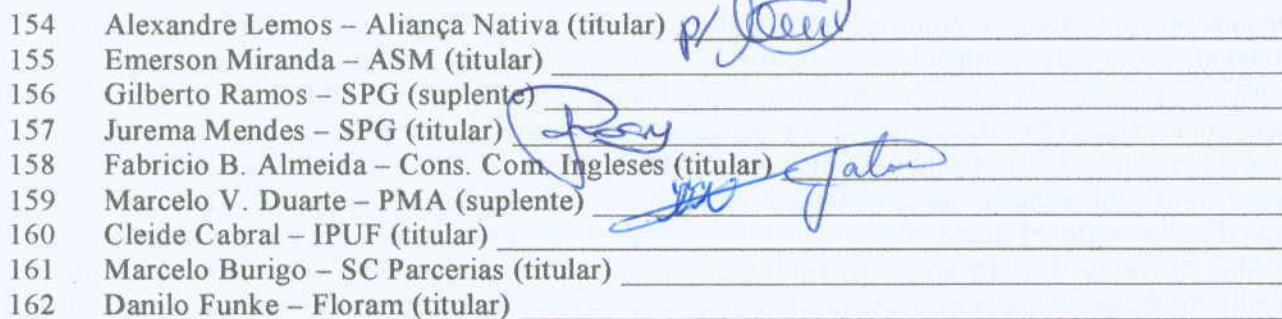 154 Alexandre Lemos – Aliança Nativa (titular) p/
155 Emerson Miranda – ASM (titular)
156 Gilberto Ramos – SPG (suplente)
157 Jurema Mendes – SPG (titular)
158 Fabricio B. Almeida – Cons. Com. Ingleses (titular)
159 Marcelo V. Duarte – PMA (suplente)
160 Cleide Cabral – IPUF (titular)
161 Marcelo Burigo – SC Parcerias (titular)
162 Danilo Funke – Floram (titular)